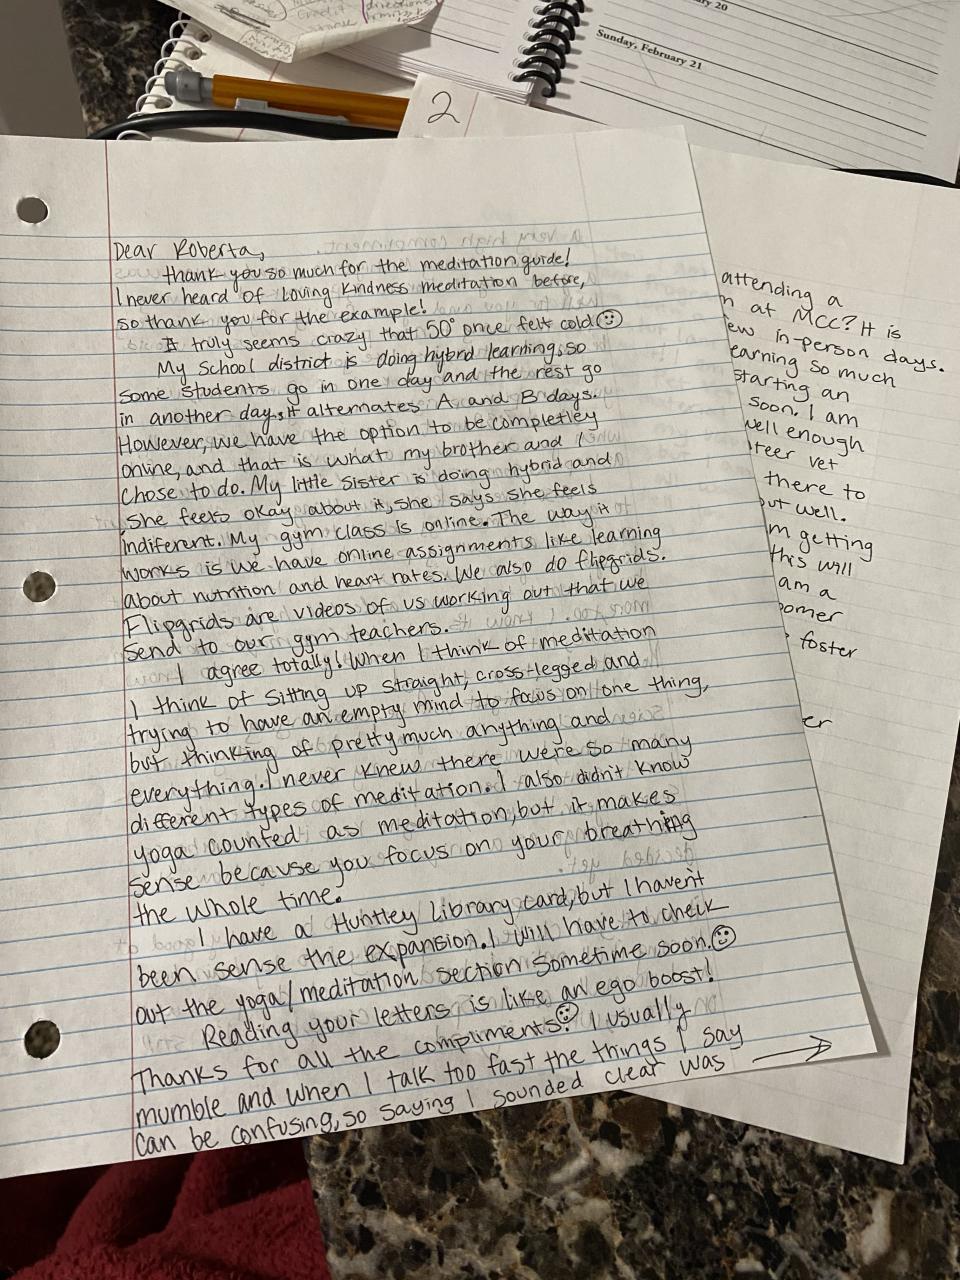 Sunday, February 21
20
2
Dear Roberta,
thank you so much for the meditation guide!
I never heard of Loving Kindness meditation before,
so thank you for the example!
It truly seems crazy that 50° once felt cold ☺
My School district is doing hybrid learning, so
some students go in one day and the rest go
in another day, it alternates A and B days.
However, we have the option to be completley
online, and that is what my brother and I
chose to do. My little sister is doing hybrid and
she feels okay about it, she says she feels
indiferent. My gym class is online. The way it
works is we have online assignments like learning
about nutrition and heart rates. We also do flipgrids.
Flipgrids are videos of us working out that we
send to our gym teachers.
I agree totally! When I think of meditation
I think of sitting up straight, cross-legged and
trying to have an empty mind to focus on one thing,
but thinking of pretty much anything and
everything. I never knew there were so many
different types of meditation. I also didn't know
yoga counted as meditation, but it makes
sense because you focus on your breathing
the whole time.
I have a Huntley Library card, but I haven't
been sense the expansion. I will have to check
out the yoga/meditation section sometime soon. ☺
Reading your letters is like an ego boost!
Thanks for all the compliments! ☺ I usually
mumble and when I talk too fast the things I say
can be confusing, so saying I sounded clear was →
attending a
at MCC? It is
in-person days.
earning so much
starting an
soon. I am
well enough
teer vet
there to
out well.
getting
this will
am a
foster
er